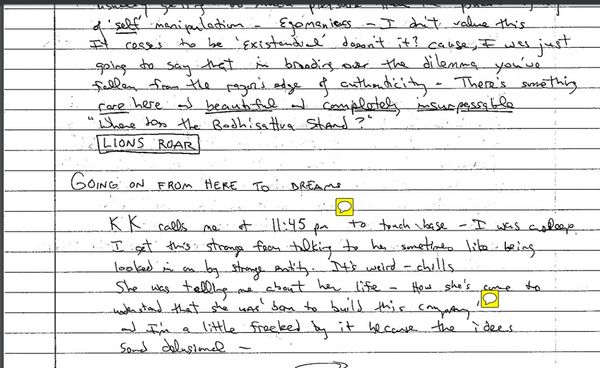 of 'self' manipulation - Egomaniacs - I don't value this
It ceases to be 'existential' doesn't it? cause, I was just
going to say that in brooding over the dilemma you've
fallen from the razor's edge of authenticity - There's something
rare here and beautiful and completely unsurpassable
"Where does the Bodhisattva Stand?"
LIONS ROAR
GOING ON FROM HERE TO DREAMS
KK calls me at 11:45 pm to touch base - I was asleep
I get this strange from talking to her sometimes like being
looked in on by strange entity. It's weird - chills
She was telling me about her life - How she's come to
understand that she was 'born to build this company'
and I'm a little freaked by it because the ideas
sound delusional -